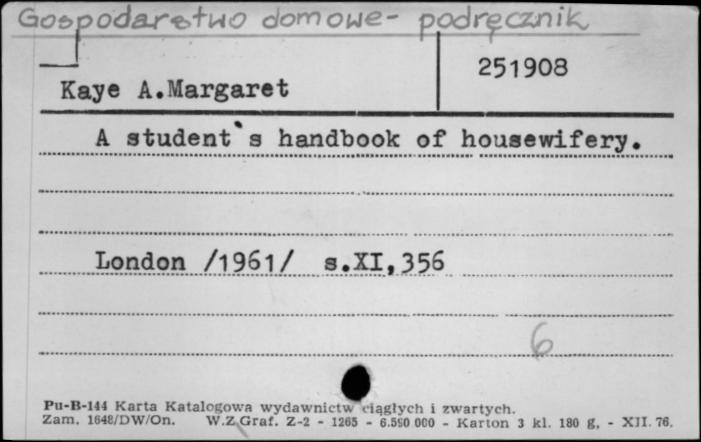 Gospodarstwo domowe- podręcznik
251908
Kaye A.Margaret
A student`s handbook of housewifery.
London /1961/ s.XI,356
6
Pu-B-144 Karta Katalogowa wydawnictw ciągłych i zwartych.
Zam. 1648/DW/On. W.Z.Graf. Z-2 - 1265 - 6.590 000 - Karton 3 kl. 180 g, - XII. 76.